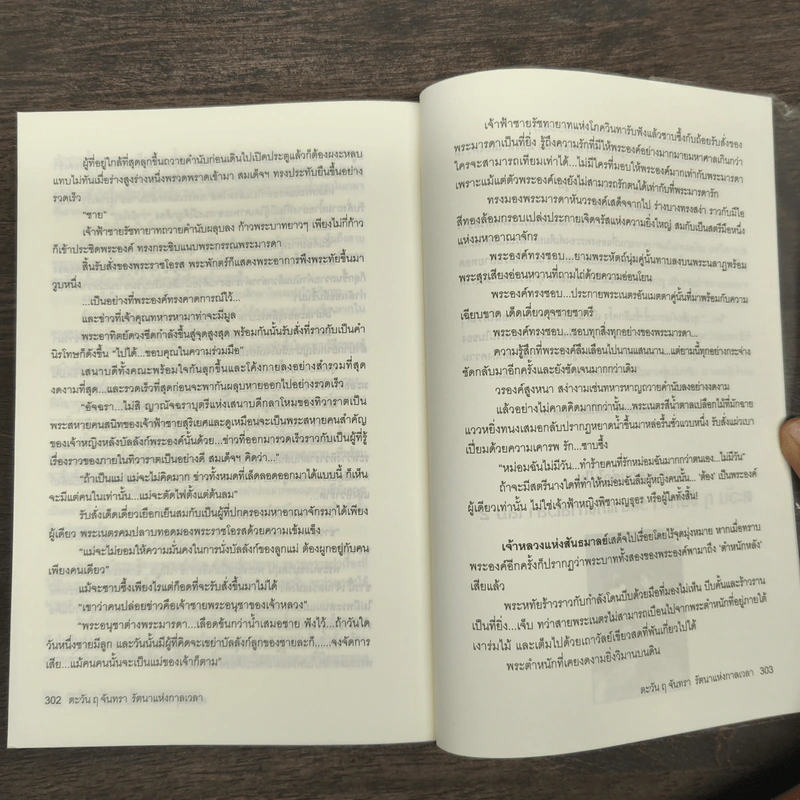 ผู้ที่อยู่ใกล้ที่สุดลุกขึ้นถวายคำนับก่อนเดินไปเปิดประตูแล้วก็ต้องผงะหลบ
แทบไม่ทันเมื่อร่างสูงร่างหนึ่งพรวดพราดเข้ามา สมเด็จฯ ทรงประทับยืนขึ้นอย่าง
รวดเร็ว
“ชาย”
เจ้าฟ้าชายรัชทายาทถวายคำนับผลุบลง ก้าวพระบาทยาวๆ เพียงไม่กี่ก้าว
ก็เข้าประชิดพระองค์ ทรงกระซิบแนบพระกรรณพระมารดา
สิ้นรับสั่งของพระราชโอรส พระพักตร์ก็แสดงพระอาการพึงพระทัยขึ้นมา
วูบหนึ่ง
...เป็นอย่างที่พระองค์ทรงคาดการณ์ไว้...
และข่าวที่เจ้าคุณทหารหามาช่างจะมีมูล
พระอาทิตย์ดวงซีดกำลังขึ้นสู่จุดสูงสุด พร้อมกันนั้นรับสั่งที่ราวกับเป็นคำ
นิรโทษก็ดังขึ้น “ไปได้...ขอบคุณในความร่วมมือ”
เสนาบดีทั้งคณะพร้อมใจกันลุกขึ้นและโค้งกายลงอย่างสำรวมที่สุด
งดงามที่สุด...และรวดเร็วที่สุดก่อนจะพากันผลุบหายออกไปอย่างรวดเร็ว
“อัจฉรา...ไม่สิ ญาณัจฉราบุตรีแห่งเสนาบดีกลาโหมของทิวาราตเป็น
พระสหายคนสนิทของเจ้าฟ้าชายสุริเยศและดูเหมือนจะเป็นพระสหายคนสำคัญ
ของเจ้าหญิงหลังบัลลังก์พระองค์นั้นด้วย...ข่าวที่ออกมารวดเร็วราวกับเป็นที่ผู้ที่รู้
เรื่องราวของภายในทิวาราตเป็นอย่างดี สมเด็จฯ คิดว่า...”
“ถ้าเป็นแม่ แม่จะไม่คิดมาก ข่าวทั้งหมดที่เล็ดลอดออกมาได้แบบนี้ ก็เห็น
จะมีแต่คนในเท่านั้น...แม่จะตัดไฟตั้งแต่ต้นลม”
รับสั่งเด็ดเดี่ยวเยือกเย็นสมกับเป็นผู้ที่ปกครองมหาอาณาจักรมาได้เพียง
ผู้เดียว พระเนตรคมปลาบทอดมองพระราชโอรสด้วยความเข้มแข็ง
“แม่จะไม่ยอมให้ความมั่นคงในการนั่งบัลลังก์ของลูกแม่ ต้องผูกอยู่กับคน
เพียงคนเดียว”
แม้จะซาบซึ้งเพียงไรแต่ก็อดที่จะรับสั่งขึ้นมาไม่ได้
“เขาว่าคนปล่อยข่าวคือเจ้าชายพระอนุชาของเจ้าหลวง”
“พระอนุชาต่างพระมารดา...เลือดข้นกว่าน้ำเสมอชาย ฟังไว้...ถ้าวันใด
วันหนึ่งชายมีลูก และวันนั้นมีผู้คิดจะเขย่าบัลลังก์ลูกของชายละก็......จงจัดการ
เสีย...แม้คนคนนั้นจะเป็นแม่ของเจ้าก็ตาม”
302 ตะวัน ฤ จันทรา รัตนาแห่งกาลเวลา
เจ้าฟ้าชายรัชทายาทแห่งโภควินทารับฟังแล้วซาบซึ้งกับถ้อยรับสั่งของ
พระมารดาเป็นที่ยิ่ง รู้ถึงความรักที่มีให้พระองค์อย่างมากมายมหาศาลเกินกว่า
ใครจะสามารถเทียมเท่าได้...ไม่มีใครที่มอบให้พระองค์มากเท่ากับพระมารดา
เพราะแม้แต่ตัวพระองค์เองยังไม่สามารถรักตนได้เท่ากับที่พระมารดารัก
ทรงมองพระมารดาหันวรองค์เสด็จจากไป ร่างบางทรงสง่า ราวกับมีไอ
สีทองล้อมกรอบเปล่งประกายเจิดจรัสแห่งความยิ่งใหญ่ สมกับเป็นสตรีมือหนึ่ง
แห่งมหาอาณาจักร
พระองค์ทรงชอบ...ยามพระหัตถ์นุ่มคู่นั้นทาบลงบนพระนลาฏพร้อม
พระสุรเสียงอ่อนหวานที่ถามไถ่ด้วยความอ่อนโยน
พระองค์ทรงชอบ...ประกายพระเนตรอันเมตตาคู่นั้นที่มาพร้อมกับความ
เฉียบขาด เด็ดเดี่ยวดุจชายชาตรี
พระองค์ทรงชอบ...ชอบทุกสิ่งทุกอย่างของพระมารดา...
ความรู้สึกที่พระองค์ลืมเลือนไปนานแสนนาน...แต่ยามนี้ทุกอย่างกระจ่าง
ชัดกลับมาอีกครั้งและยังชัดเจนมากกว่าเดิม
วรองค์สูงหนา สง่างามเช่นทหารหาญถวายคำนับลงอย่างงดงาม
แล้วอย่างไม่คาดคิดมากกว่านั้น...พระเนตรสีน้ำตาลเปลือกไม้ที่มักฉาย
แววหยิ่งทนงเสมอกลับปรากฏหยาดน้ำขึ้นมาหล่อรื้นชั่วแวบหนึ่ง รับสั่งแผ่วเบา
เปี่ยมด้วยความเคารพ รัก...ซาบซึ้ง
“หม่อมฉันไม่มีวัน...ทำร้ายคนที่รักหม่อมฉันมากกว่าตนเอง...ไม่มีวัน”
ถ้าจะมีสตรีนางใดที่ทำให้หม่อมฉันลืมผู้หญิงคนนั้น... ‘ต้อง’ เป็นพระองค์
ผู้เดียวเท่านั้น ไม่ใช่เจ้าฟ้าหญิงพิชามญธุอร หรือผู้ใดทั้งสิ้น!
เจ้าหลวงแห่งสันธมาลย์เสด็จไปเรื่อยโดยไร้จุดมุ่งหมาย หากเมื่อทราบ
พระองค์อีกครั้งก็ปรากฏว่าพระบาททั้งสองของพระองค์พามาถึง ‘ตำหนักหลัง’
เสียแล้ว
พระหทัยร้าวราวกับกำลังโดนบีบด้วยมือที่มองไม่เห็น บีบคั้นและร้าวราน
เป็นที่ยิ่ง...เจ็บ ทว่าสายพระเนตรไม่สามารถเบือนไปจากพระตำหนักที่อยู่ภายใต้
เงาร่มไม้ และเต็มไปด้วยเถาวัลย์เขียวสดที่พันเกี่ยวไปได้
พระตำหนักที่เคยงดงามยิ่งวิมานบนดิน
ตะวัน ฤ จันทรา รัตนาแห่งกาลเวลา 303